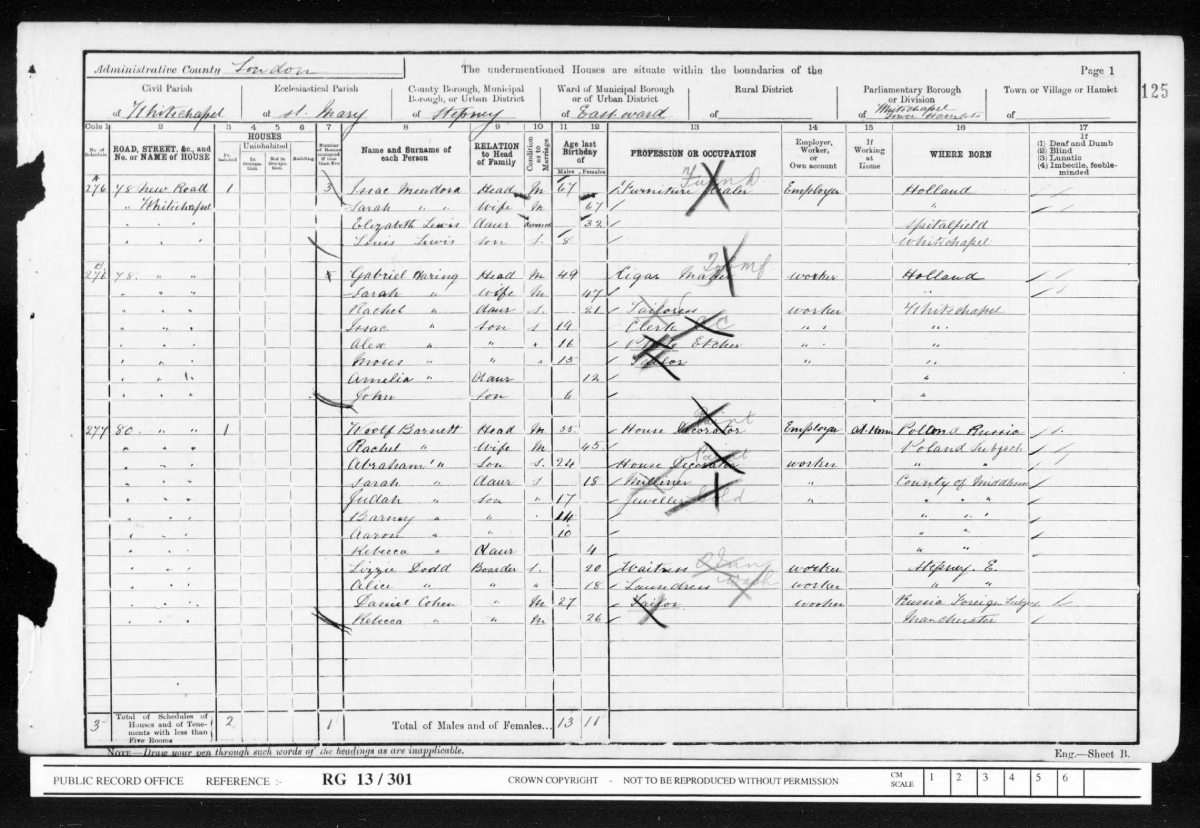 Administrative County London
The undermentioned Houses are situate within the boundaries of the
Page 1
125
Civil Parish
of Whitechapel
Ecclesiastical Parish
of St. Mary
County Borough, Municipal Borough, or Urban District
of Stepney
Ward of Municipal Borough or of Urban District
of East ward
Rural District
of
Parliamentary Borough or Division
of Whitechapel Tower Hamlets
Town or Village or Hamlet
of
Cols 1 2 3 4 5 6 7 8 9 10 11 12 13 14 15 16 17
No. of Schedule
ROAD, STREET, &c., and No. or NAME of HOUSE
HOUSES
Inhabited
Uninhabited
In Occupation
Not in Occupation
Building
Number of Rooms occupied if less than five
Name and Surname of each Person
RELATION to Head of Family
Condition as to Marriage
Age last Birthday of
Males Females
PROFESSION OR OCCUPATION
Employer, Worker, or Own account
If Working at Home
WHERE BORN
If
(1) Deaf and Dumb
(2) Blind
(3) Lunatic
(4) Imbecile, feeble-minded
A
276 78 New Road 1 3 Isaac Mendoza Head M 67 Furniture Dealer Employer Holland
" Whitechapel Sarah " " Wife M 67 "
" " " Elizabeth Lewis daur 32 Spitalfield
" " " Louis Lewis Son S. 8 Whitechapel
B
276 78 " " Gabriel Haring Head M 49 Cigar Maker worker Holland
" " " Sarah " Wife M 47 "
" " " Rachel " daur S 21 Tailoress worker Whitechapel
" " " Isaac " Son S 19 Clerk " " "
" " " Alex " " " 16 Etcher " " "
" " " Moses " " " 15 Tailor "
" " " Amelia " daur 12 "
" " " John Son 6 "
277 80 " " 1 Woolf Barnett Head M 55 House Decorator Employer At Home Poland Russia
" " " Rachel " Wife M 45 Poland Subject
" " " Abraham " Son S. 24 House Decorator worker " "
" " " Sarah " daur S 18 Milliner " County of Middlesex
" " " Judah " Son " 17 Jeweller " " " "
" " " Barney " " " 14 " " "
" " " Aaron " " 10 " "
" " " Rebecca " daur 4 " "
" " " Lizzie Dodd Boarder S. 20 Waitress worker Stepney E.
" " " Alice " " " 18 Laundress worker " "
" " " Daniel Cohen " M 27 Tailor worker Russia Foreign Subject
" " " Rebecca " " M 26 Manchester
3 Total of Schedules of Houses and of Tenements with less than Five Rooms 2 1 Total of Males and of Females... 13 11
NOTE—Draw your pen through such words of the headings as are inapplicable.
Eng.—Sheet B.
PUBLIC RECORD OFFICE REFERENCE :- RG 13/301 CROWN COPYRIGHT - NOT TO BE REPRODUCED WITHOUT PERMISSION CM SCALE 1 2 3 4 5 6